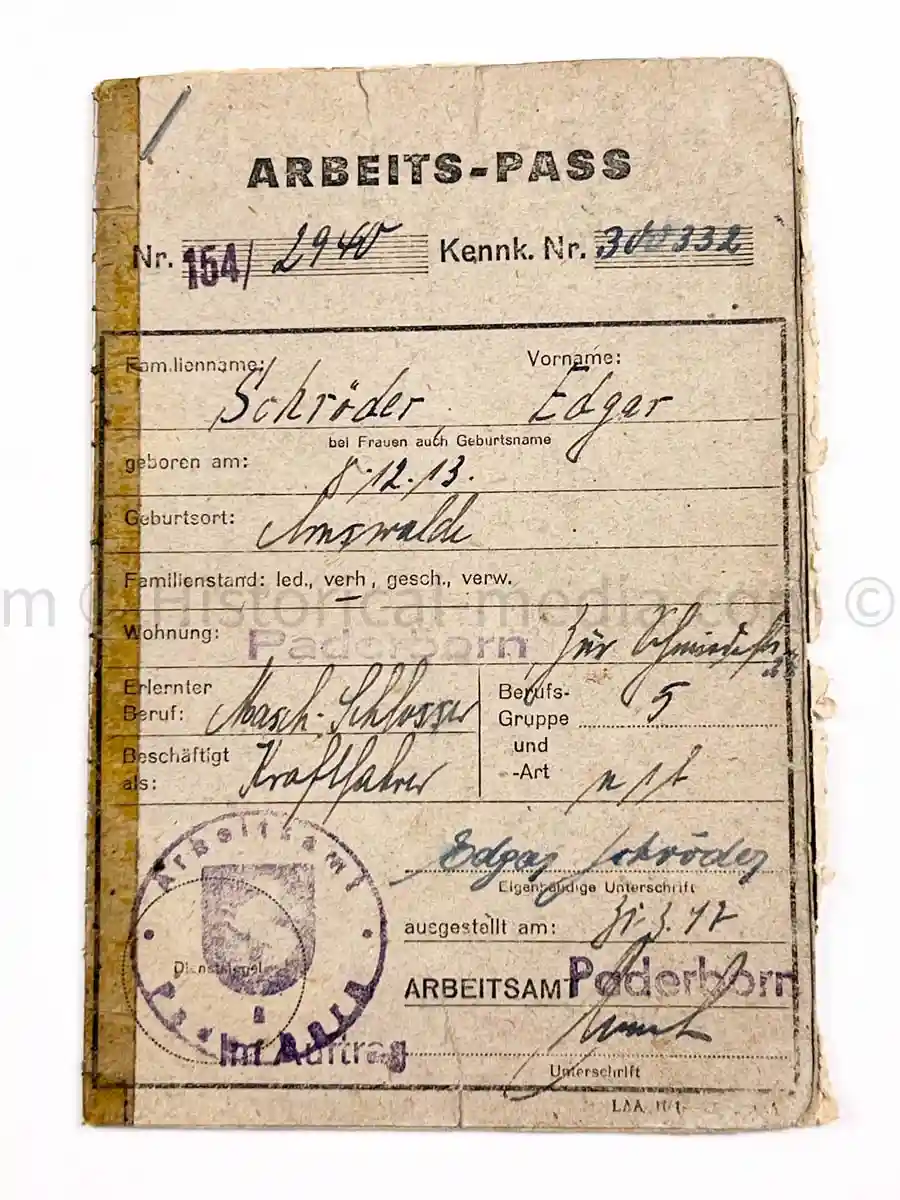 ARBEITS-PASS
Nr. 154/ 2940 Kennk. Nr. 300332
Familienname: Vorname:
Schröder Edgar
bei Frauen auch Geburtsname
geboren am: 8.12.13.
Geburtsort: Arnswalde
Familienstand: led., verh., gesch., verw.
m © Historical-media.com ©
Wohnung: Paderborn Zur Schmiede
Erlernter Beruf: Masch.-Schlosser
Berufs-Gruppe 5
und
-Art
Beschäftigt als: Kraftfahrer
Edgar Schröder
Eigenhändige Unterschrift
ausgestellt am: 31.3.47
ARBEITSAMT Paderborn
Arbeitsamt
Paderborn
Dienstsiegel
Im Auftrag
Unterschrift
LAA. II/1